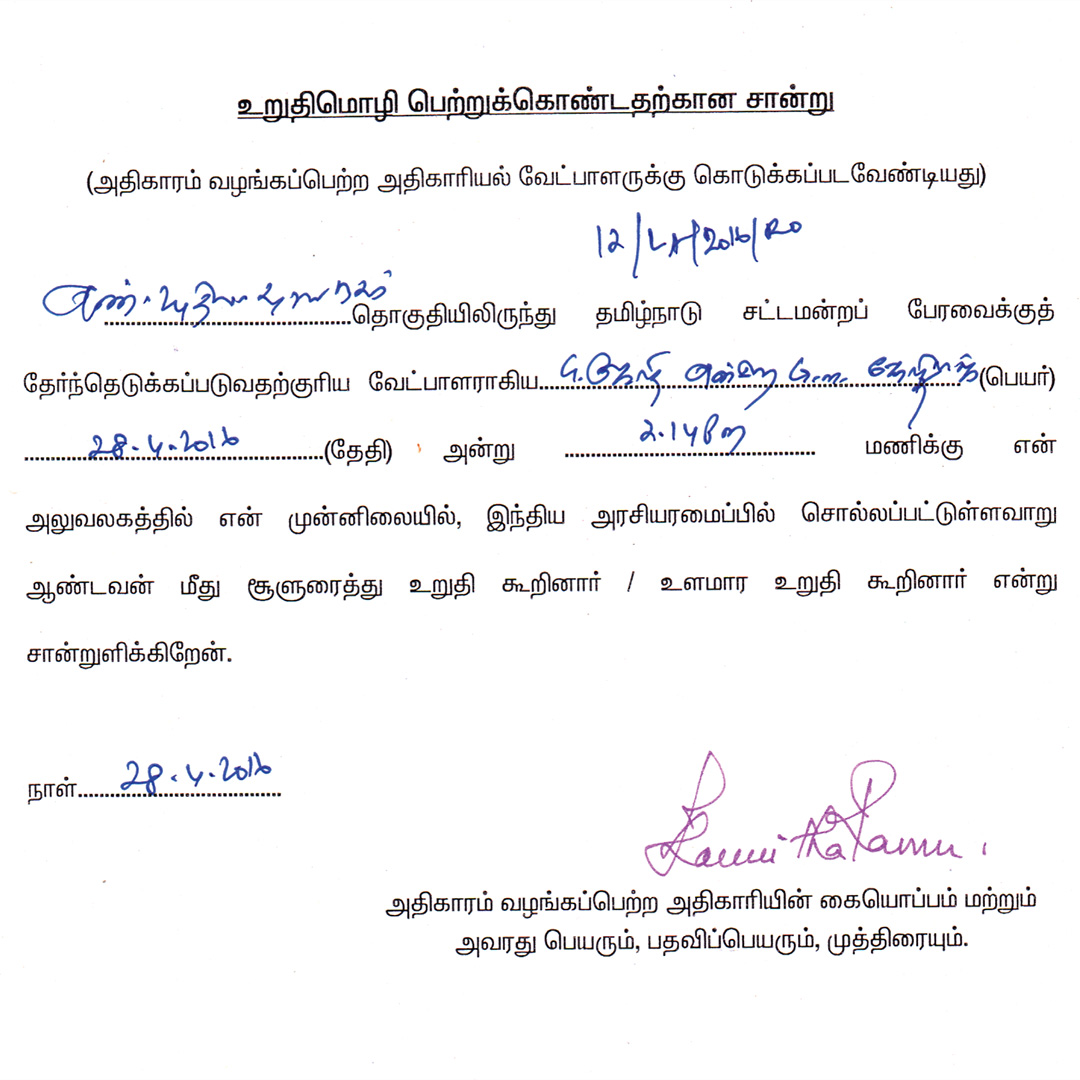 உறுதிமொழி பெற்றுக்கொண்டதற்கான சான்று
(அதிகாரம் வழங்கப்பெற்ற அதிகாரியல் வேட்பாளருக்கு கொடுக்கப்படவேண்டியது)
12/LA/2016/RO
தொகுதியிலிருந்து தமிழ்நாடு சட்டமன்றப் பேரவைக்குத்
தேர்ந்தெடுக்கப்படுவதற்குரிய வேட்பாளராகிய (பெயர்)
28.4.2016 (தேதி) அன்று 2.14 மணிக்கு என்
அலுவலகத்தில் என் முன்னிலையில், இந்திய அரசியரமைப்பில் சொல்லப்பட்டுள்ளவாறு
ஆண்டவன் மீது சூளுரைத்து உறுதி கூறினார் / உளமார உறுதி கூறினார் என்று
சான்றுளிக்கிறேன்.
நாள் 28.4.2016
அதிகாரம் வழங்கப்பெற்ற அதிகாரியின் கையொப்பம் மற்றும்
அவரது பெயரும், பதவிப்பெயரும், முத்திரையும்.